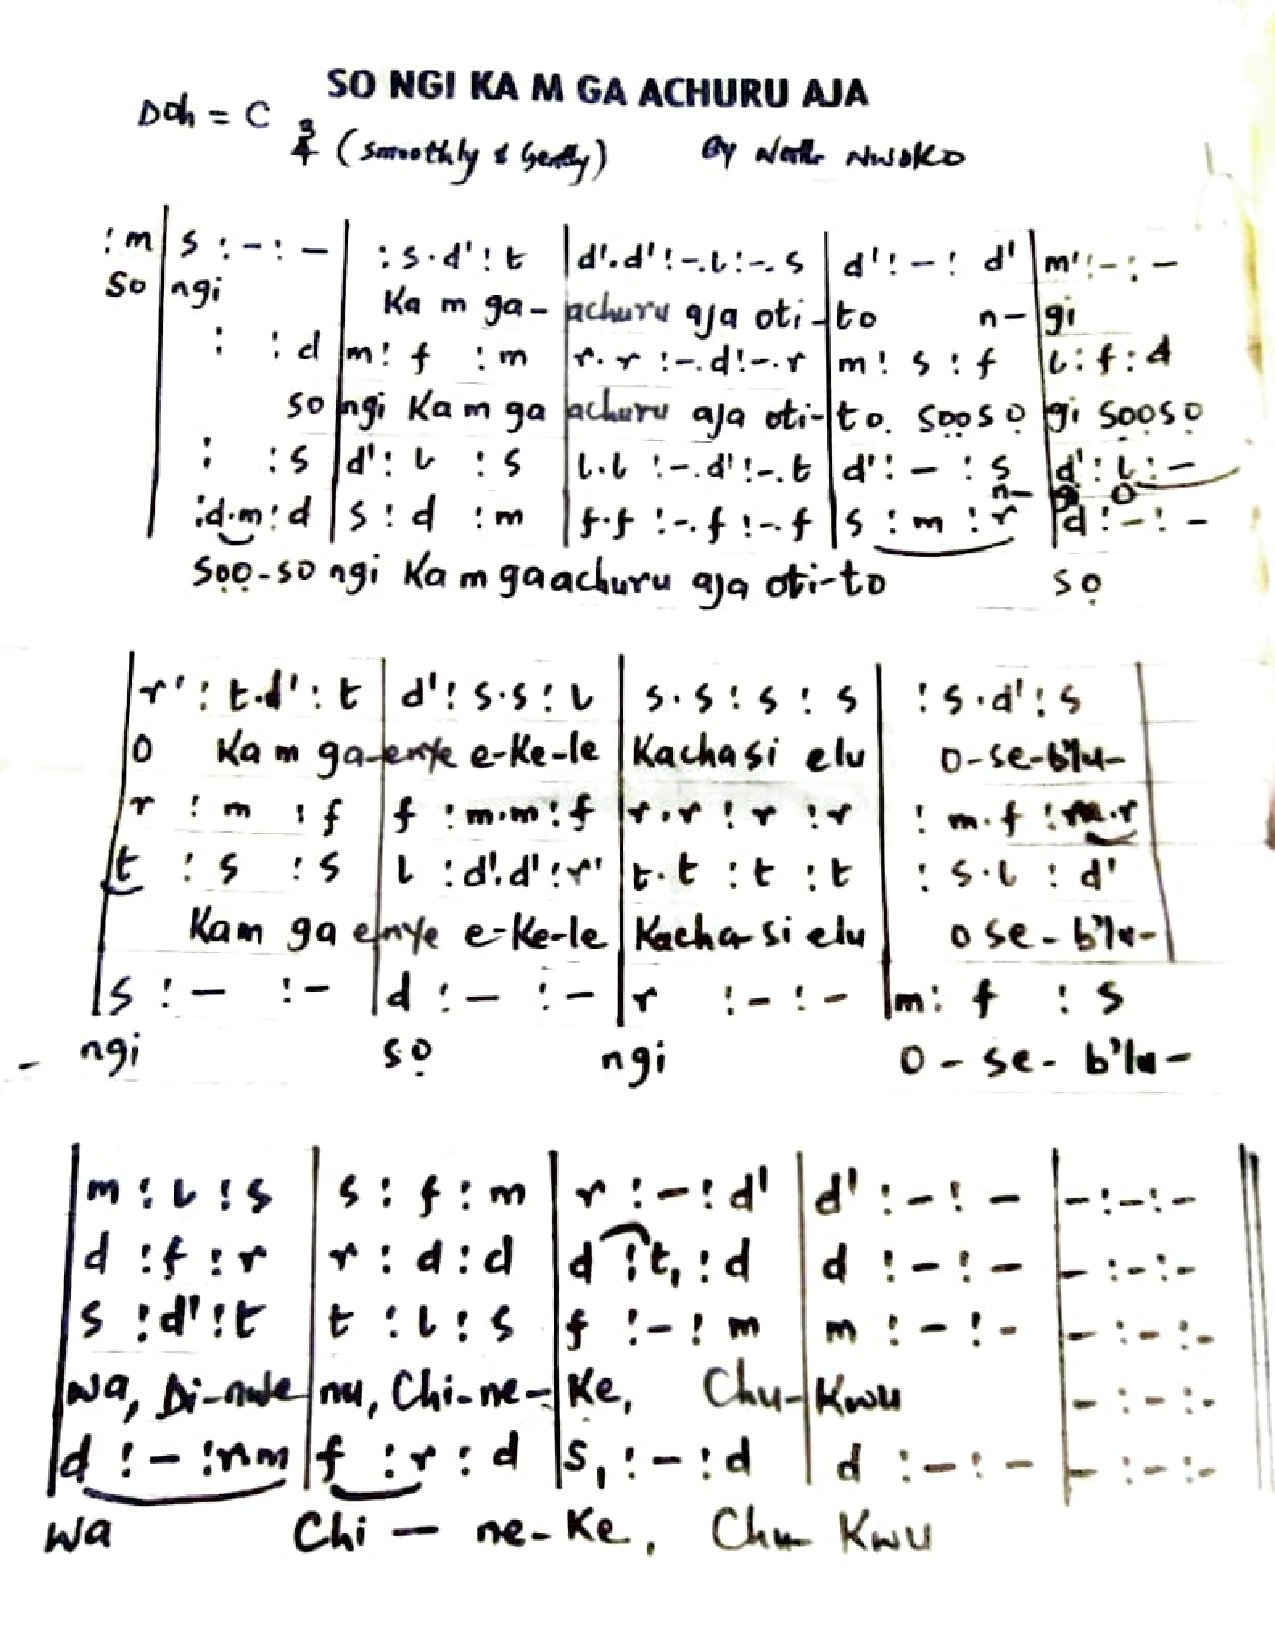 SO NGI KA M GA ACHURU AJA
Doh = C 3/4 (Smoothly & Gently) By Nwoko
: m | s : - : - | : s . d' : t | d' . d' : - . l : - . s | d' : - : d' | m' : - : -
So ngi Ka m ga- achuru aja oti-to n-gi
: : d | m : f : m | r . r : - . d : - . r | m : s : f | l : f : d
so ngi Ka m ga achuru aja oti-to. Sọọ sọ gi Sọọ sọ
: : s | d' : l : s | l . l : - . d' : - . t | d' : - : s | d' : l : -
n- gi O
: d . m : d | s : d : m | f . f : - . f : - . f | s : m : r | d : - : -
Sọọ-so ngi Ka m ga achuru aja oti-to sọ
r' : t . d' : t | d' : s . s : l | s . s : s : s | : s . d' : s
O Ka m ga-enye e-ke-le Kachasi elu O-se-b'lu-
r : m : f | f : m . m : f | r . r : r : r | : m . f : m . r
t : s : s | l : d' . d' : r' | t . t : t : t | : s . l : d'
Kam ga enye e-ke-le Kacha-si elu O se-b'lu-
s : - : - | d : - : - | r : - : - | m : f : s
- ngi sọ ngi O - se - b'lu-
m : l : s | s : f : m | r : - : d' | d' : - : - | - : - : -
d : f : r | r : d : d | d : t, : d | d : - : - | - : - : -
s : d' : t | t : l : s | f : - : m | m : - : - | - : - : -
wa, Di-nwe nu, Chi-ne-Ke, Chu-Kwu - : - : -
d : - : r m | f : r : d | s, : - : d | d : - : - | - : - : -
wa Chi — ne-Ke, Chu Kwu